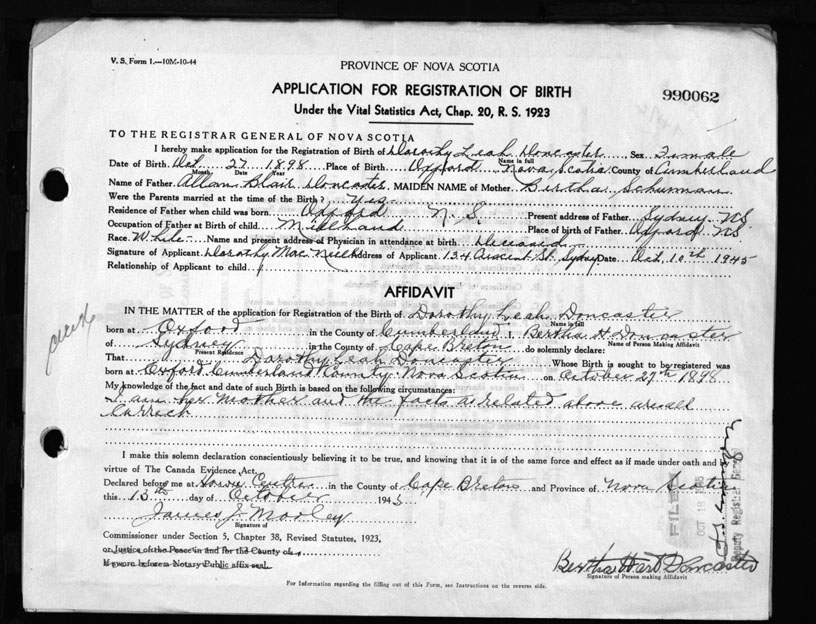 V. S. Form 1.—10M-10-44
PROVINCE OF NOVA SCOTIA
APPLICATION FOR REGISTRATION OF BIRTH
990062
Under the Vital Statistics Act, Chap. 20, R. S. 1923
TO THE REGISTRAR GENERAL OF NOVA SCOTIA
I hereby make application for the Registration of Birth of Dorothy Leah Doncaster, Sex Female
Name in full
Date of Birth Oct 27 1898 Place of Birth Oxford Nova Scotia County of Cumberland
Month Date Year
Name of Father Allan Blair Doncaster MAIDEN NAME of Mother Bertha Schurman
Were the Parents married at the time of the Birth? Yes
Residence of Father when child was born Oxford N. S. Present address of Father Sydney NS
Occupation of Father at Birth of child Millhand Place of birth of Father Oxford NS.
Race White Name and present address of Physician in attendance at birth Deceased
Signature of Applicant Dorothy Mac Neill Address of Applicant 134 St. Sydney Date Oct. 10th 1945
Relationship of Applicant to child
AFFIDAVIT
IN THE MATTER of the application for Registration of the Birth of Dorothy Leah Doncaster
Name in full
born at Oxford in the County of Cumberland I, Bertha H Doncaster
Name of Person Making Affidavit
of Sydney in the County of Cape Breton do solemnly declare:
Present Residence
That Dorothy Leah Doncaster Whose Birth is sought to be registered was
born at Oxford Cumberland County Nova Scotia on October 27th 1898
My knowledge of the fact and date of such Birth is based on the following circumstances:
I am her Mother and the facts as related above are all
Correct
I make this solemn declaration conscientiously believing it to be true, and knowing that it is of the same force and effect as if made under oath and by
virtue of The Canada Evidence Act.
Declared before me at in the County of Cape Breton and Province of Nova Scotia
this 13th day of October 1945
James J Morley
Signature of
Commissioner under Section 5, Chapter 38, Revised Statutes, 1923,
or Justice of the Peace in and for the County of
If sworn before a Notary Public affix seal.
Bertha Hart Doncaster
Signature of Person making Affidavit
For Information regarding the filling out of this Form, see Instructions on the reverse side.
FILED
OCT 18 1945
Deputy Registrar General